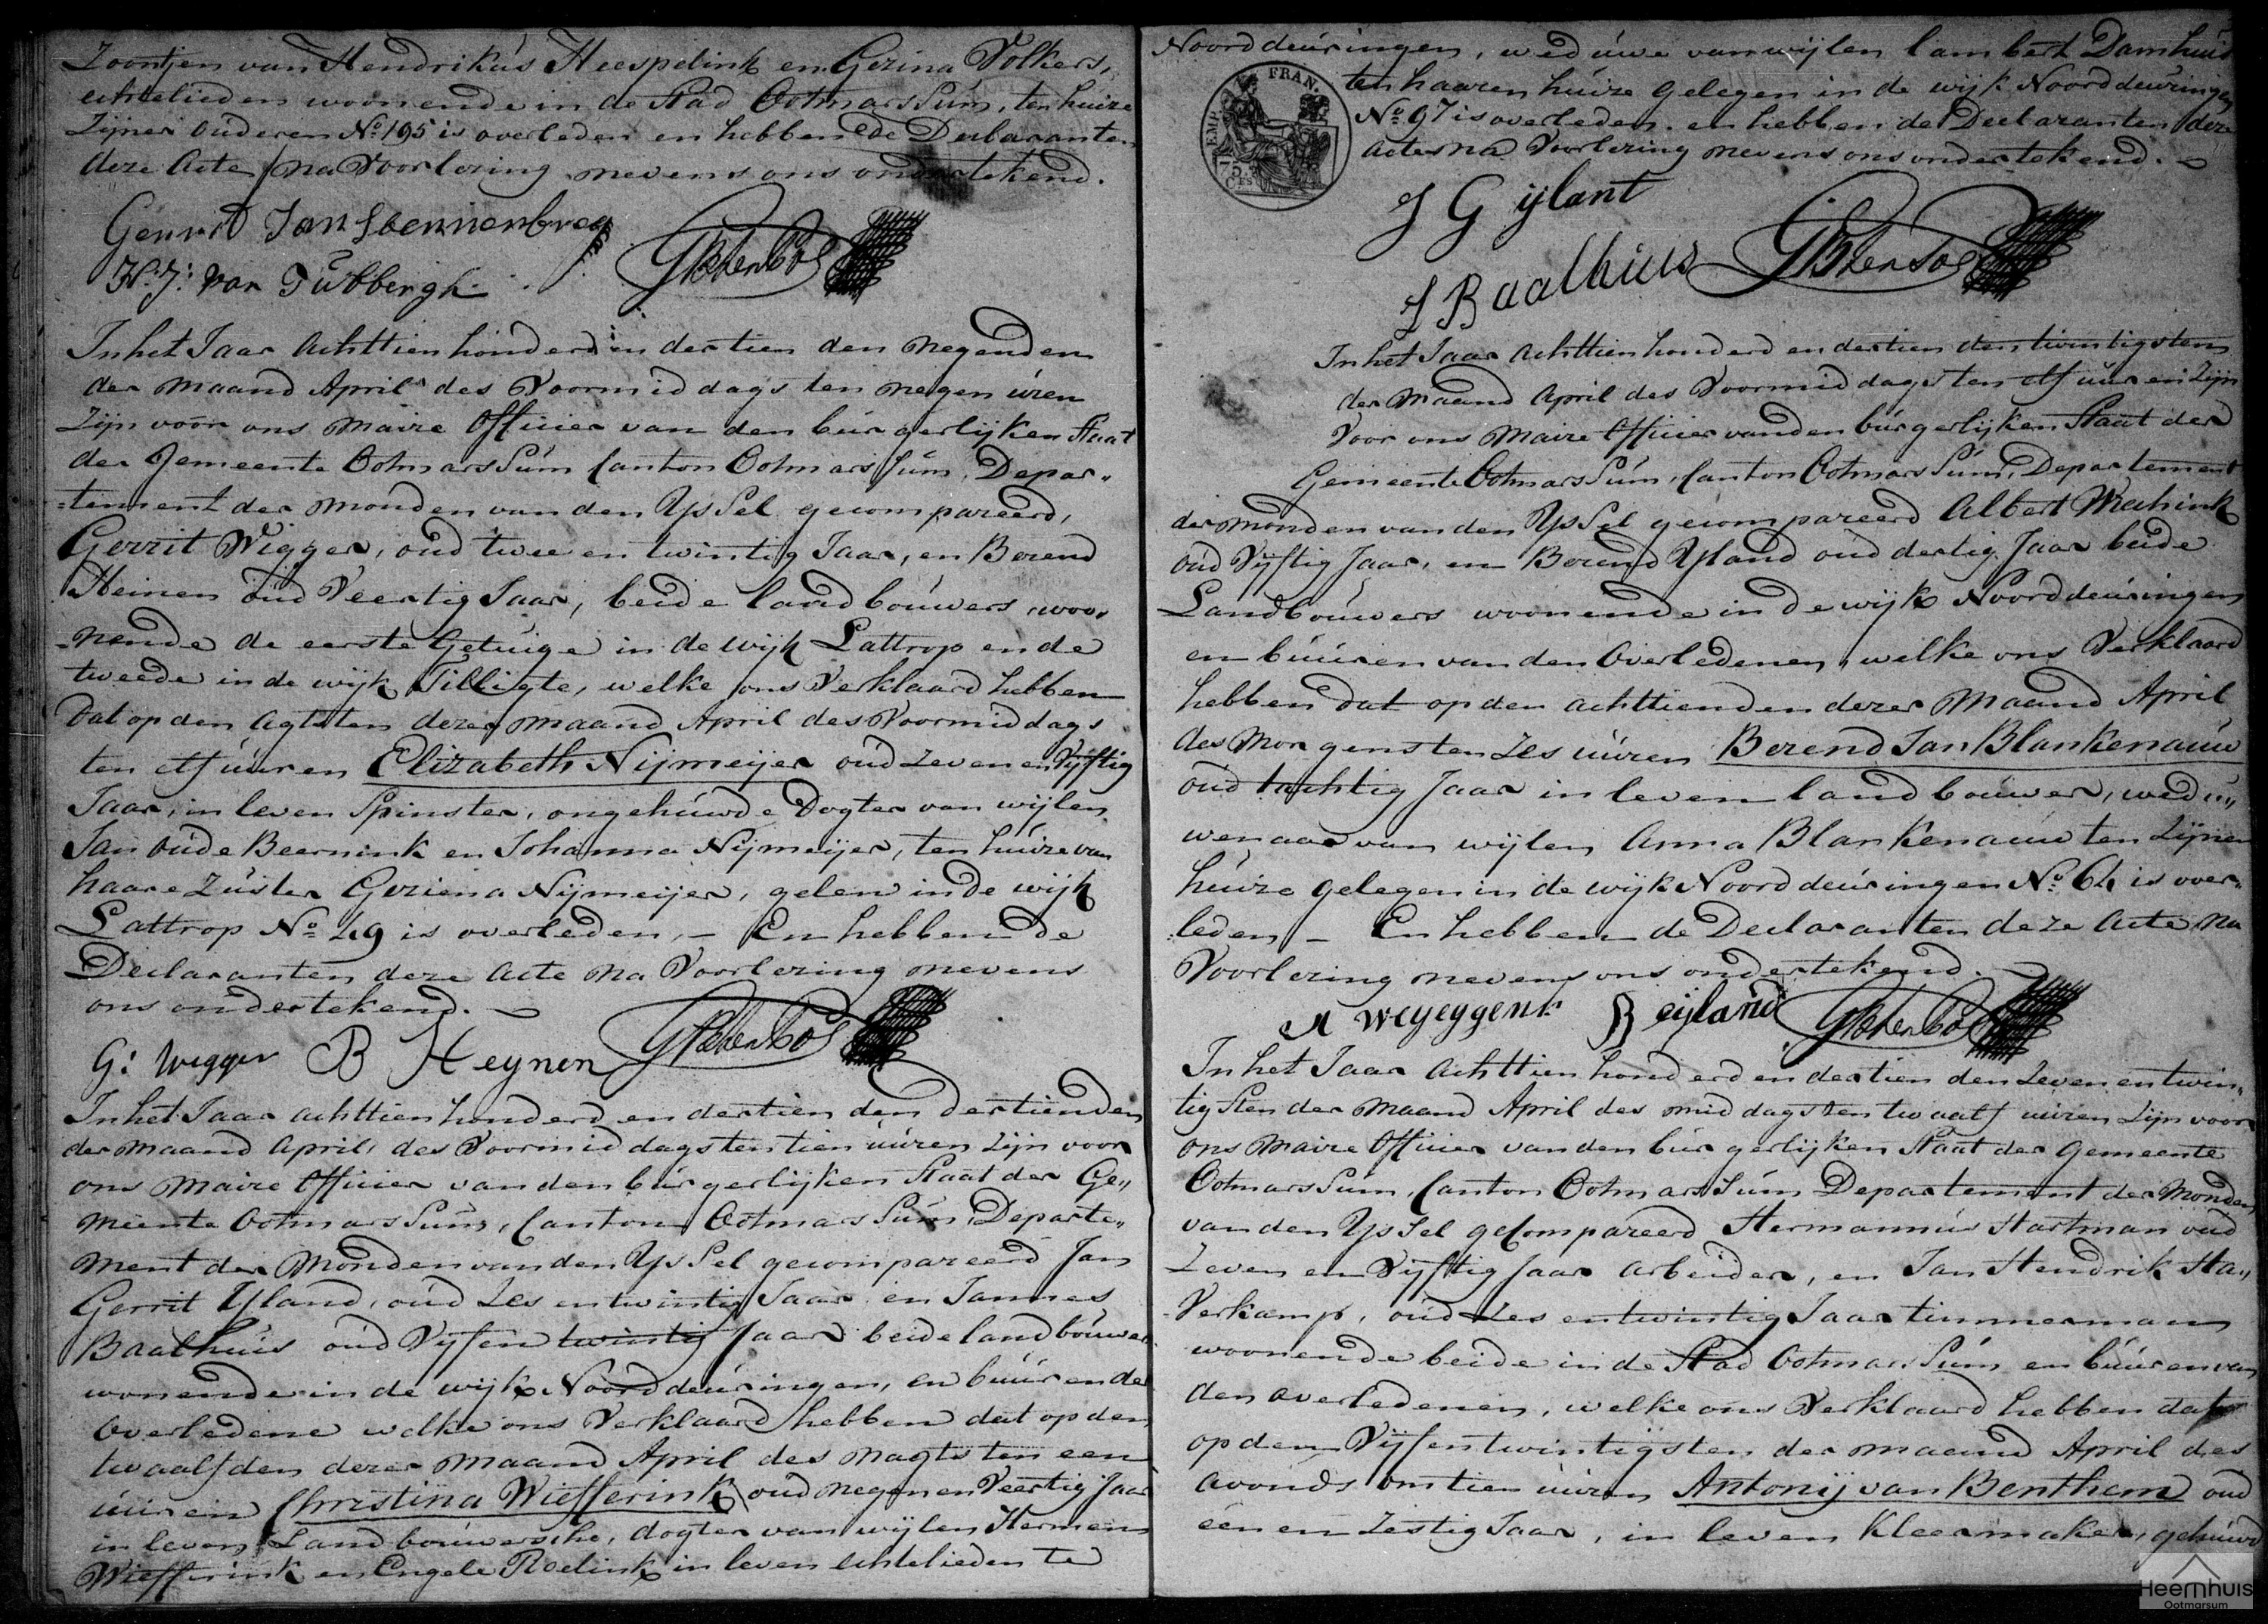 Zoontjen van Hendrikus Heespelink en Gezina Volkers,
echtelieden woonende in de Stad Ootmarssum, ten huize
Zijner ouderen No 195 is overleden en hebben de Declaranten
deze Acte na Voorlezing nevens ons ondertekend.
Gerrit Jan
H: J: van Tubbergh
In het Jaar Achttien honderd en dertien den Negenden
der Maand April des Voormiddags ten negen uren
Zijn voor ons Maire Officier van den burgerlijken Staat
der Gemeente Ootmarssum Canton Ootmarssum, Depar„
-tement der Monden van den Yssel gecompareerd,
Gerrit Wigger, oud twee en twintig Jaar, en Berend
Heinen oud Veertig Jaar, beide landbouwers, woo,
-nende de eerste Getuige in de wijk Lattrop en de
tweede in de wijk Tilligte, welke ons Verklaard hebben
Dat op den Agtsten dezer Maand April des Voormiddags
ten elf uuren Elizabeth Nijmeijer oud Zeven en Vijftig
Jaar, in leven Spinster, ongehuwde Dogter van wijlen
Jan oude Beernink en Johanna Nijmeijer, ten huize van
haare Zuster Geziena Nijmeijer, gelen in de wijk
Lattrop No 49 is overleden, — En hebben de
Declaranten deze Acte Na Voorlezing nevens
ons ondertekend. —
G: Wegger B Heynen
In het Jaar achttien honderd en dertien den dertienden
der Maand April, des Voormiddags ten tien uuren Zijn voor
ons Maire Officier van den burgerlijken Staat der Ge„
meente Ootmarssum, Canton Ootmarssum Departe„
ment der Monden van den Yssel gecompareerd Jan
Gerrit Yland, oud Zes en twintig Jaar en Jannes
Baalhuis oud Vyf en twintig Jaar beide landbouwer
wonende in de wijk Noorddeuringen, en buuren der
Overledene welke ons Verklaard hebben dat op den
twaalfden dezer Maand April des Nagts ten een
uuren Christina Wiefferink oud negen en Veertig Jaar
in leven Landbouwersche, dogter van wijlen Hermen
Wiefferink en Engele Roelink in leven echtelieden te
Noorddeuringen, weduwe van wijlen Lambert Damhuis
ten haaren huize gelegen in de wijk Noorddeuringen
No 97 is overleden en hebben de Declaranten deze
Acte na Voorlezing nevens ons ondertekend. —
EMP. FRAN.
75.
Cts
J G ijlant
J Baalhuis
In het Jaar Achttien honderd en dertien den twintigsten
der Maand April des Voormiddags ten elf uuren Zijn
Voor ons Maire Officier van den burgerlijken Staat der
Gemeente Ootmarssum, Canton Ootmarssum, Departement
der Monden van den Yssel gecompareerd Albert
oud Vyftig Jaar, en Berend Yland oud dertig Jaar beide
Landbouwers woonende in de wijk Noorddeuringen
en buuren van den Overledenen, welke ons Verklaard
hebben dat op den achttienden dezer Maand April
des Morgens ten Zes uuren Berend Jan Blankenauw
oud tachtig Jaar in leven landbouwer, wedu„
wenaar van wijlen Anna Blankenauw ten Zijnen
huize gelegen in de wijk Noorddeuringen No 64 is over„
leden — En hebben de Declaranten deze Acte Na
Voorlezing nevens ons ondertekend. —
A weyeggenk B eijland
In het Jaar Achttien honderd en dertien den Zeven en twin„
tigsten der Maand April des middags ten twaalf uuren Zijn voor
ons Maire Officier van den burgerlijken Staat der Gemeente
Ootmarssum, Canton Ootmarssum Departement der Monden
van den Yssel gecompareerd Hermannus Hartman oud
Zeven en Vyftig Jaar arbeider, en Jan Hendrik Ha„
Verkamp, oud Zes en twintig Jaar timmerman
woonende beide in de Stad Ootmarssum en buuren van
den overledenen, welke ons Verklaard hebben dat
op den Vijf en twintigsten der Maand April des
avonds om tien uuren Antonij van Benthem oud
één en Zestig Jaar, in leven Kleermaker, gehuwd
Heemhuis
Ootmarsum